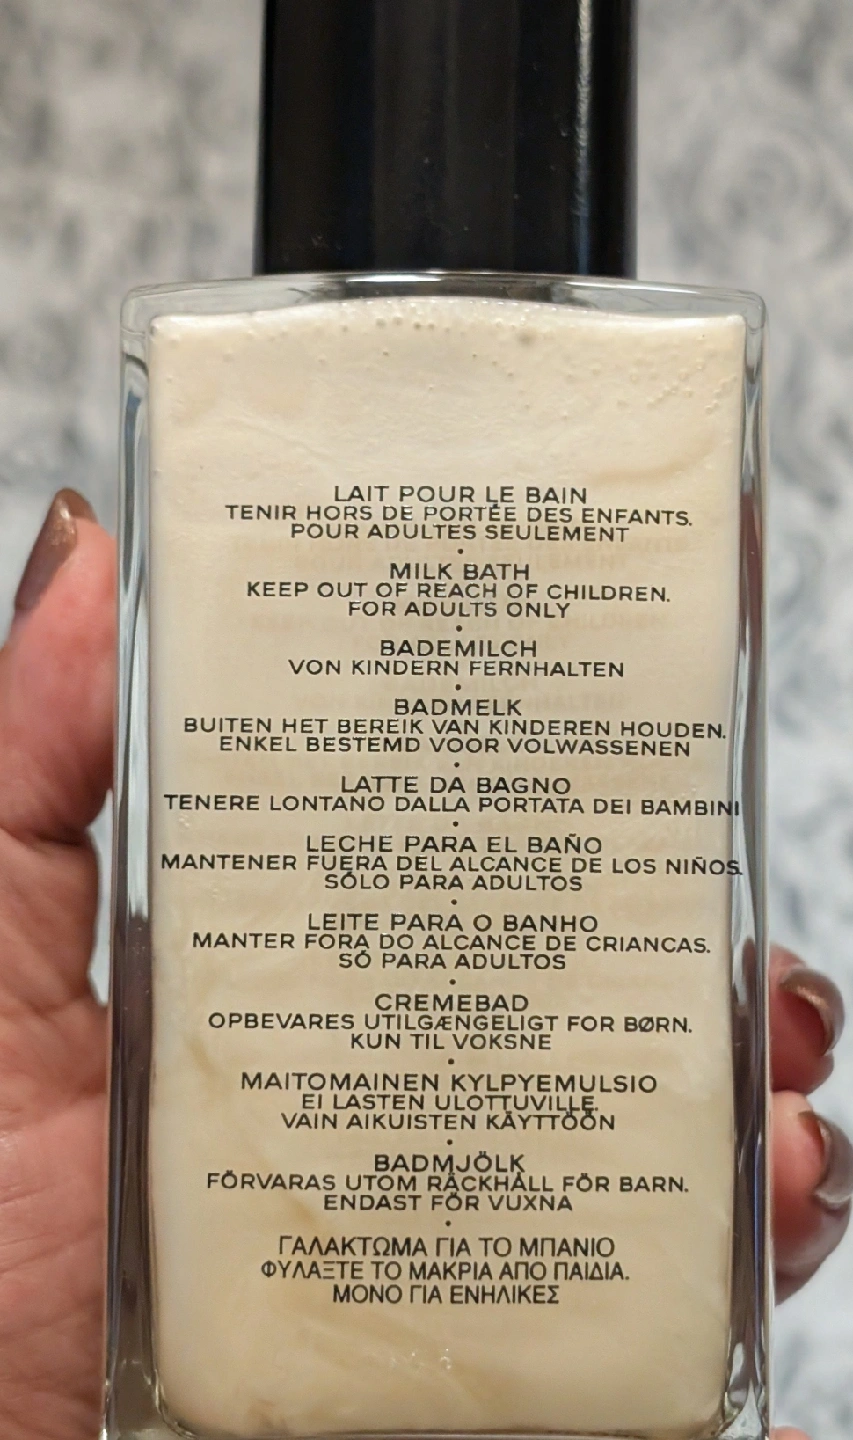 LAIT POUR LE BAIN
TENIR HORS DE PORTÉE DES ENFANTS.
POUR ADULTES SEULEMENT
•
MILK BATH
KEEP OUT OF REACH OF CHILDREN.
FOR ADULTS ONLY
•
BADEMILCH
VON KINDERN FERNHALTEN
•
BADMELK
BUITEN HET BEREIK VAN KINDEREN HOUDEN.
ENKEL BESTEMD VOOR VOLWASSENEN
•
LATTE DA BAGNO
TENERE LONTANO DALLA PORTATA DEI BAMBINI
•
LECHE PARA EL BAÑO
MANTENER FUERA DEL ALCANCE DE LOS NIÑOS.
SÓLO PARA ADULTOS
•
LEITE PARA O BANHO
MANTER FORA DO ALCANCE DE CRIANCAS.
SÓ PARA ADULTOS
•
CREMEBAD
OPBEVARES UTILGÆNGELIGT FOR BØRN.
KUN TIL VOKSNE
•
MAITOMAINEN KYLPYEMULSIO
EI LASTEN ULOTTUVILLE.
VAIN AIKUISTEN KÄYTTÖÖN
•
BADMJÖLK
FÖRVARAS UTOM RÄCKHÅLL FÖR BARN.
ENDAST FÖR VUXNA
•
ΓΑΛΑΚΤΩΜΑ ΓΙΑ ΤΟ ΜΠΑΝΙΟ
ΦΥΛΑΞΤΕ ΤΟ ΜΑΚΡΙΑ ΑΠΟ ΠΑΙΔΙΑ.
ΜΟΝΟ ΓΙΑ ΕΝΗΛΙΚΕΣ